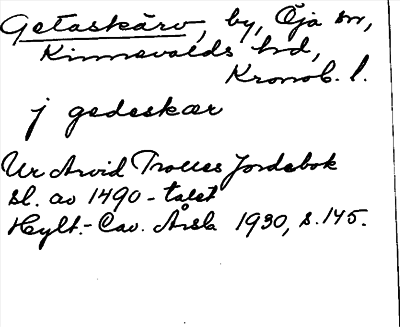 Getaskärv, by, Öja sn,
Kinnevalds hd,
Kronob. l.
j gedeskær
Ur Arvid Trolles Jordebok
sl. av 1490-talet
Hylt.-Cav. Årsb. 1930, s. 145.